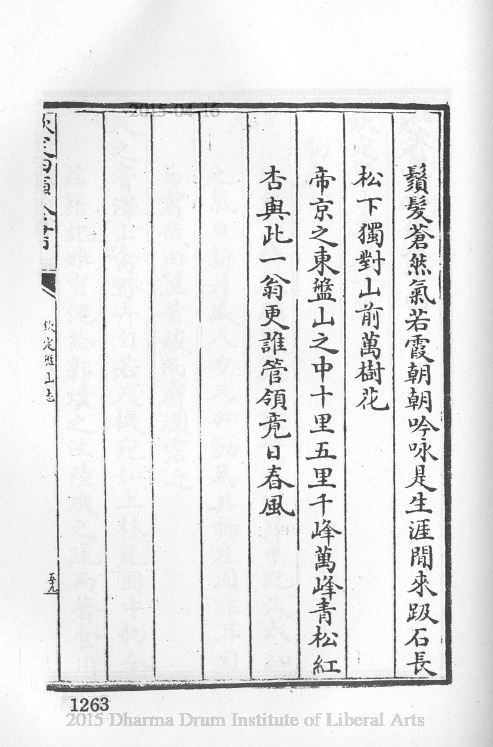 2015-04-16
鬚髮蒼然氣若霞朝朝吟咏是生涯閒來趿石長
松下獨對山前萬樹花
帝京之東盤山之中十里五里千峰萬峰青松紅
杏與此一翁更誰管領竟日春風
欽定四庫全書
欽定盤山志
1263
2015 Dharma Drum Institute of Liberal Arts